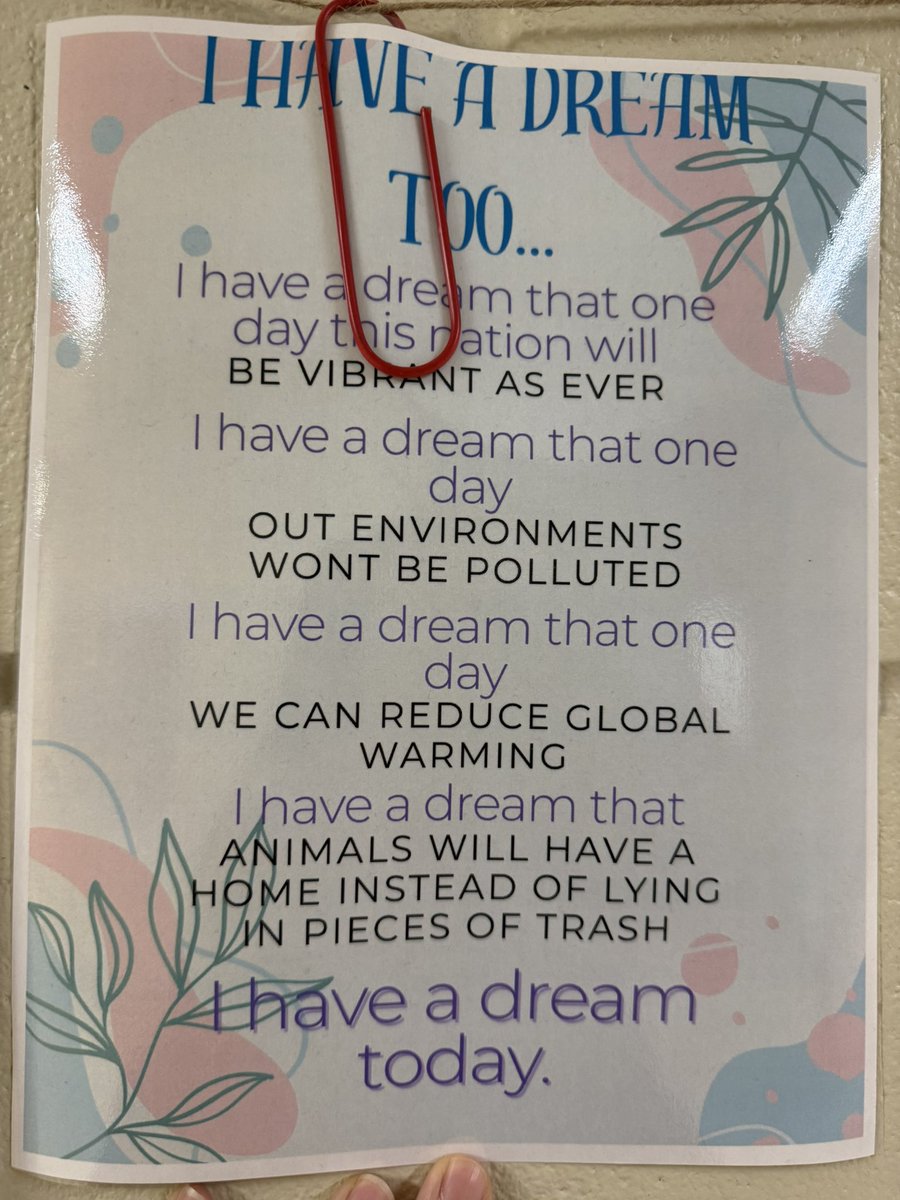 I HAVE A DREAM
TOO...
I have a dream that one
day this nation will
BE VIBRANT AS EVER
I have a dream that one
day
OUT ENVIRONMENTS
WONT BE POLLUTED
I have a dream that one
day
WE CAN REDUCE GLOBAL
WARMING
I have a dream that
ANIMALS WILL HAVE A
HOME INSTEAD OF LYING
IN PIECES OF TRASH
I have a dream
today.